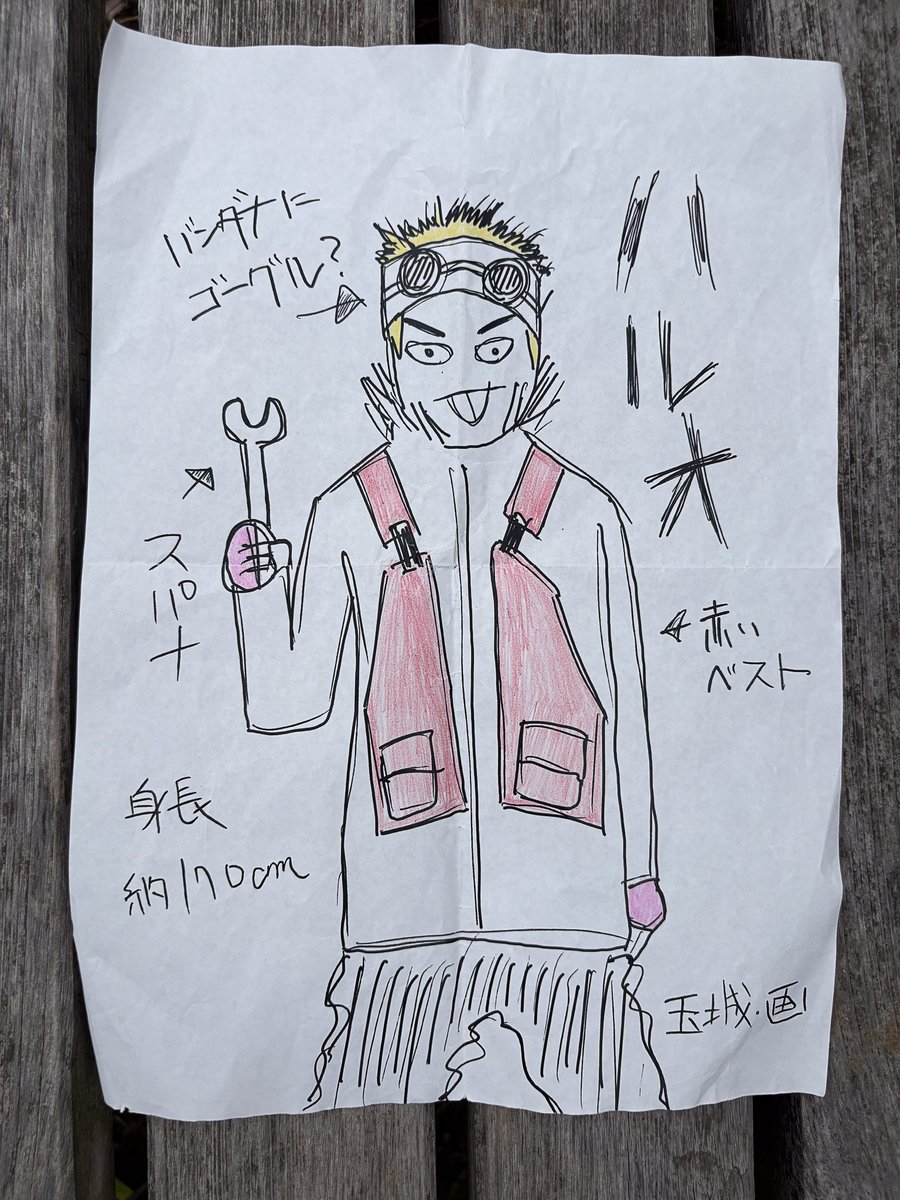 バンダナに
ゴーグル?
ハルオ
スパナ
赤い
ベスト
身長
約170cm
玉城・画